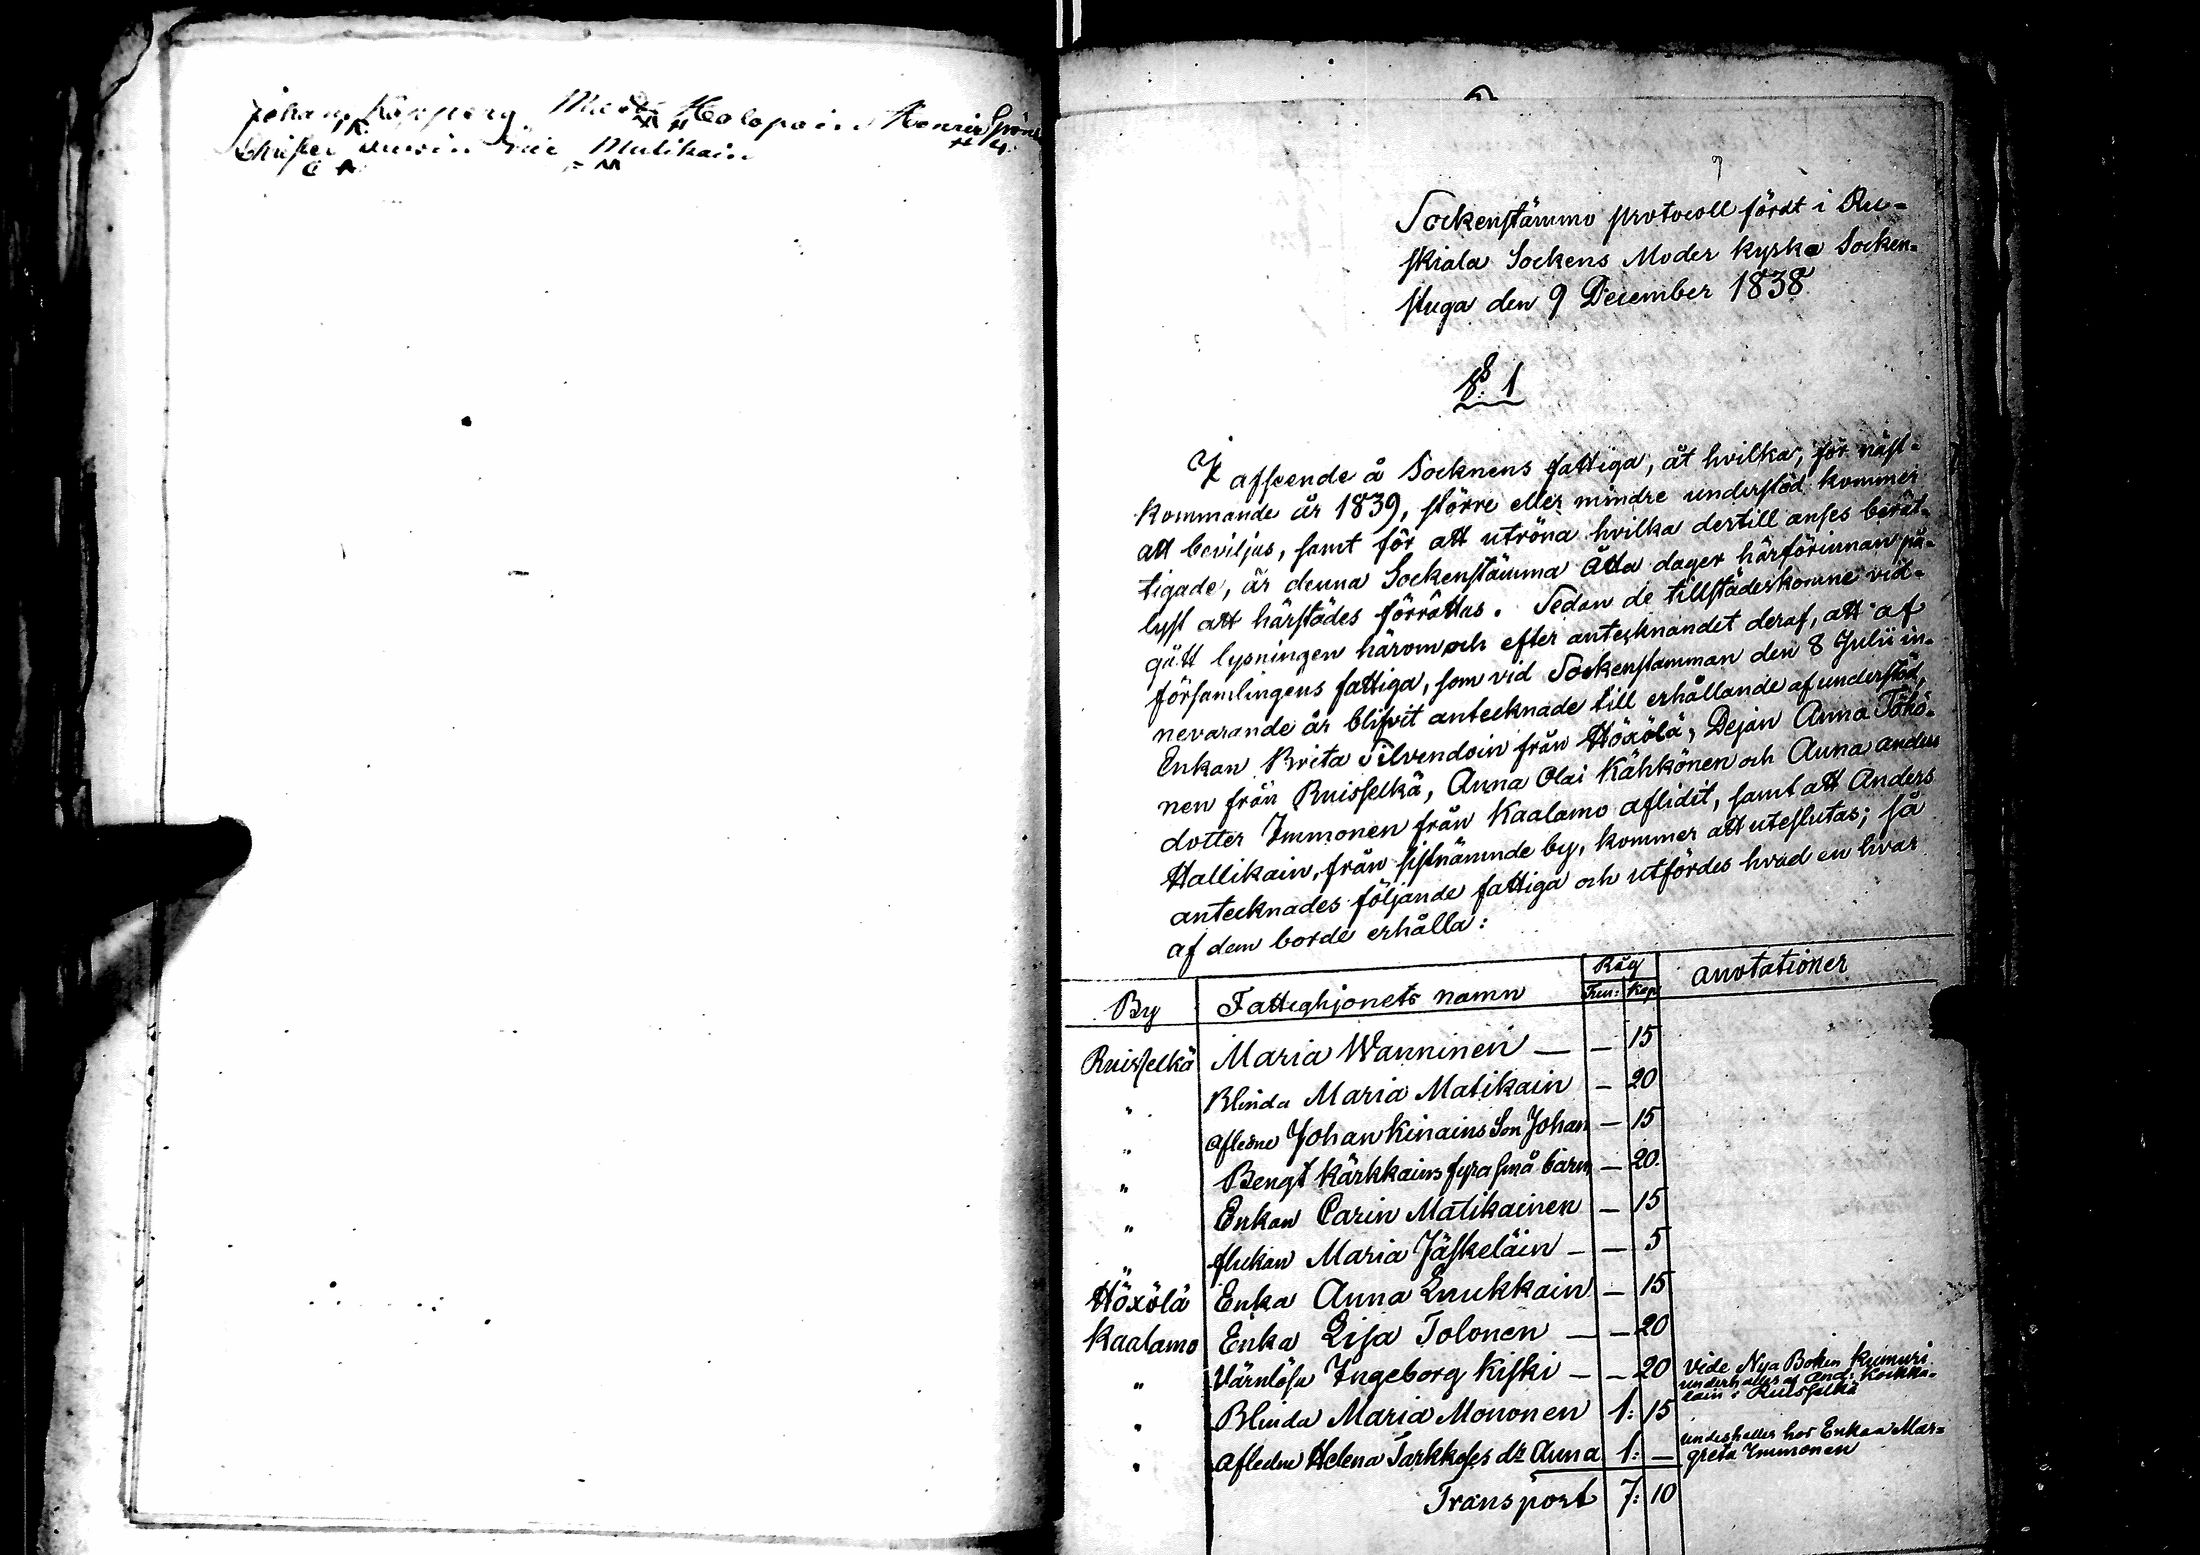 Johan Käpporg Holopain Henric
Matikain
Sockenstämmo protocoll fördt i Ru-
skiala Sockens Moder kyrka Socken-
stuga den 9 December 1838
§. 1
I afseende å Socknens fattiga, åt hvilka, för näst-
kommande år 1839, större eller mindre understöd kommer
att beviljas, samt för att utröna hvilka dertill anses berät-
tigade, är denna Sockenstämma åtta dagar härförinnan på-
lyst att härstädes förrättas. Sedan de tillstädeskomne vid-
gått lysningen härom och efter antecknandet deraf, att af
församlingens fattiga, som vid Sockenstamman den 8 Julii in-
nevarande år blifvit antecknade till erhållande af understöd,
Enkan Brita Silvendoin från Höxölä, Dejan Anna Tohö-
nen från Ruisselkä, Anna Olai Kähkönen och Anna Anders
dotter Immonen från Kaalamo aflidit, samt att Anders
Hallikain, från sistnämnde by, kommer att uteslutas; så
antecknades följande fattiga och utfördes hvad en hvar
af dem borde erhålla:
By Fattighjonets namn Råg Tun: Kap anotationer
Ruisselkä Maria Wanninen — — 15
" Blinda Maria Matikain — 20
" Afledne Johan Kinains Son Johan — 15
" Bengt Kärkkains fyra små barn — 20.
" Enkan Carin Matikainen — 15
" flickan Maria Jäskeläin — — 5
Höxölä Enka Anna Lnukkain — 15
Kaalamo Enka Lisa Tolonen — — 20
" Värnlösa Ingeborg Kiski — — 20 Vide Nya Boken Kumuri
underhålles af And: Koikka-
lain i Ruisselkä
" Blinda Maria Mononen 1: 15
" Afledne Helena Tarkkoses dr Anna 1: — underhålles hos Enkan Mar-
greta Immonen
Transport 7: 10